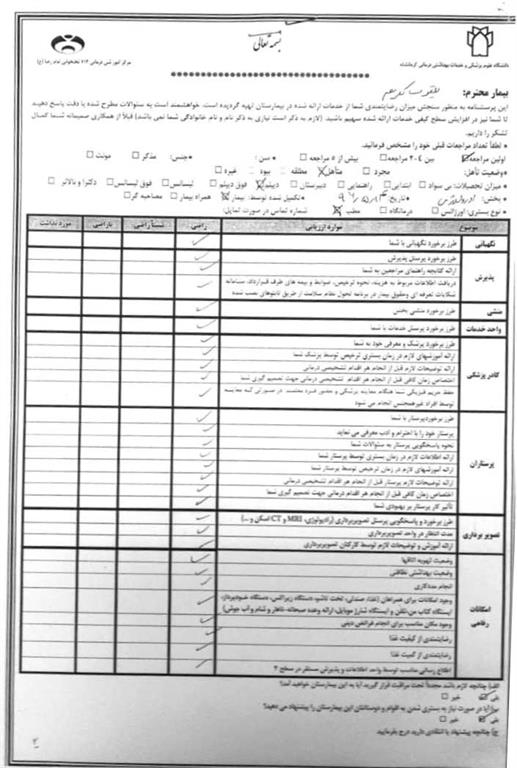 بسمه تعالی
دانشگاه علوم پزشکی و خدمات بهداشتی درمانی کرمانشاه
مرکز آموزشی درمانی ۵۱۲ تختخوابی امام رضا (ع)
بیمار محترم:
این پرسشنامه به منظور سنجش میزان رضایتمندی شما از خدمات ارائه شده در بیمارستان تهیه گردیده است. خواهشمند است به سئوالات مطرح شده با دقت پاسخ دهید
تا شما نیز در افزایش سطح کیفی خدمات ارائه شده سهیم باشید. (لازم به ذکر است نیازی به ذکر نام و نام خانوادگی شما نمی باشد) قبلاً از همکاری صمیمانه شما کمال
تشکر را داریم.
• لطفاً تعداد مراجعات قبلی خود را مشخص فرمائید.
اولین مراجعه بین ۴-۲ مراجعه بیش از ۵ مراجعه • سن: • جنس: مذکر مونث
• وضعیت تأهل: مجرد متأهل مطلقه بیوه غیره
• میزان تحصیلات: بی سواد ابتدایی راهنمایی دبیرستان دیپلم فوق دیپلم لیسانس فوق لیسانس دکترا و بالاتر
• بخش: اورولوژی • تاریخ • تکمیل شده توسط: بیمار همراه بیمار مصاحبه گر
• نوع بستری: اورژانس درمانگاه مطب شماره تماس در صورت تمایل:
موضوع موارد ارزیابی راضی نسبتاً راضی ناراضی مورد نداشت
نگهبانی طرز برخورد نگهبانی با شما
پذیرش طرز برخورد پرسنل پذیرش
ارائه کتابچه راهنمای مراجعین به شما
دریافت اطلاعات مربوط به هزینه، نحوه ترخیص، ضوابط و بیمه های طرف قرارداد، سامانه
شکایات تعرفه ای وحقوق بیمار در برنامه تحول نظام سلامت از طریق تابلوهای نصب شده
منشی طرز برخورد منشی بخش
واحد خدمات طرز برخورد پرسنل خدمات با شما
کادر پزشکی طرز برخورد پزشک و معرفی خود به شما
ارائه آموزشهای لازم در زمان بستری ترخیص توسط پزشک شما
ارائه توضیحات لازم قبل از انجام هر اقدام تشخیصی درمانی
اختصاص زمان کافی قبل از انجام هر اقدام تشخیصی درمانی جهت تصمیم گیری شما
حفظ حریم فیزیکی شما هنگام معاینه پزشکی و حضور فرد معتمد در صورتی که معاینه
توسط افراد غیرهمجنس انجام می شود
پرستاران طرز برخورد پرستار با شما
پرستار خود را با احترام و ادب معرفی می نماید
نحوه پاسخگویی پرستار به سئوالات شما
ارائه اطلاعات لازم در زمان بستری توسط پرستار شما
ارائه آموزشهای لازم در زمان ترخیص توسط پرستار شما
ارائه توضیحات لازم پرستار قبل از انجام هر اقدام تشخیصی درمانی
اختصاص زمان کافی قبل از انجام هر اقدام درمانی جهت تصمیم گیری شما
تأثیر کار پرستار بر بهبودی شما
تصویر برداری طرز برخورد و پاسخگویی پرسنل تصویربرداری (رادیولوژی، MRI و CT اسکن و ...)
مدت انتظار در واحد تصویربرداری
ارائه آموزش و توضیحات لازم توسط کارکنان تصویربرداری
امکانات رفاهی وضعیت تهویه اتاقها
وضعیت بهداشتی نظافتی
انجام مددکاری
وجود امکانات برای همراهان (غذا، صندلی، تخت تاشو، دستگاه زیراکس، دستگاه خودپرداز،
ایستگاه کتاب من، تلفن و ایستگاه شارژ موبایل، ارائه وعده صبحانه، ناهار و شام و آب جوش)
وجود مکان مناسب برای انجام فرائض دینی
رضایتمندی از کیفیت غذا
رضایتمندی از کمیت غذا
اطلاع رسانی مناسب توسط واحد اطلاعات و پذیرش مستقر در سطح ۴
الف) چنانچه لازم باشد مجدداً تحت مراقبت قرار گیرید آیا به این بیمارستان خواهید آمد؟
بلی خیر
ب) آیا در صورت نیاز به بستری شدن به اقوام و دوستانتان این بیمارستان را پیشنهاد می دهید؟
بلی خیر
ج) چنانچه پیشنهاد یا انتقادی دارید درج بفرمایید